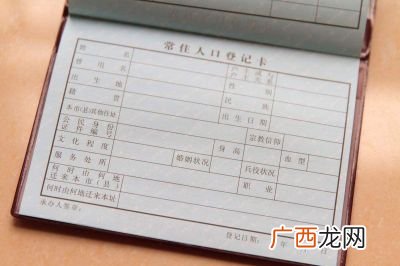 常住人口登记卡
姓名
户主或与户主关系
曾用名
性别
出生地
民族
籍贯
出生日期
本市(县)其他住址
宗教信仰
公民身份证件编号
身高
血型
文化程度
婚姻状况
兵役状况
服务处所
职业
何时由何地迁来本市(县)
何时由何地迁来本址
承办人签章:
登记日期: 年 月 日
广西龙网